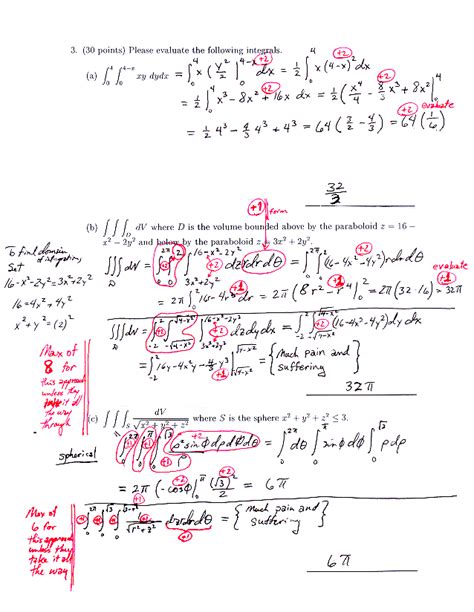 3. (30 points) Please evaluate the following integrals.
(a) ∫₀⁴ ∫₀⁴⁻ˣ xy dydx = ∫₀⁴ x ( y²/2 |₀⁴⁻ˣ dx = ½ ∫₀⁴ x (4-x)² dx
+2 +2
= ½ ∫₀⁴ x³ - 8x² + 16x dx = ½ ( x⁴/4 - 8/3 x³ + 8x² |₀⁴
+2 +2
= ½ 4³ - 4/3 4³ + 4³ = 64 ( 3/2 - 4/3 ) = 64 ( 1/6 )
+2 evaluate
32/3
+1 form
(b) ∫∫∫_D dV where D is the volume bounded above by the paraboloid z = 16 −
x² − 2y² and below by the paraboloid z = 3x² + 2y².
To find domain
of integration
Set
16-x²-2y²=3x²+2y²
16=4x²+4y²
x²+y²=(2)²
∫∫∫_D dV = ∫₀^2π ∫₀² ∫_3x²+2y²^16-x²-2y² dz r dr dθ = ∫₀^2π ∫₀² (16-4x²-4y²) r dr dθ
+2 +2 +2
= 2π ∫₀² 16r - 4r³ dr = 2π ( 8r² - r⁴ |₀² = 2π (32-16) = 32π
+1 +1 evaluate +1
∫∫∫_D dV = ∫₋₂² ∫_-√4-x²^√4-x² ∫_3x²+2y²^16-x²-2y² dz dy dx = ∫₋₂² ∫_-√4-x²^√4-x² (16-4x²-4y²) dy dx
+2 +2 +2
= ∫₋₂² 16y - 4x²y - 4/3 y³ |_-√4-x²^√4-x² = { Much pain and
suffering
+1
32π
Max of
8 for
this approach
unless they
it all
the way
through
(c) ∫∫∫_S dV/√x² + y² + z² where S is the sphere x² + y² + z² ≤ 3.
spherical
∫₀^2π ∫₀^π ∫₀^√3 ρ² sin φ dρ dφ dθ / ρ = ∫₀^2π dθ ∫₀^π sin φ dφ ∫₀^√3 ρ dρ
+1 +1 +1 +2
= 2π ( -cos φ |₀^π (√3)²/2 = 6π
+2
Max of
6 for
this approach
unless they
take it all
the way
1/√r²+z² r dz dr dθ = { Much pain and
suffering
+1
6π